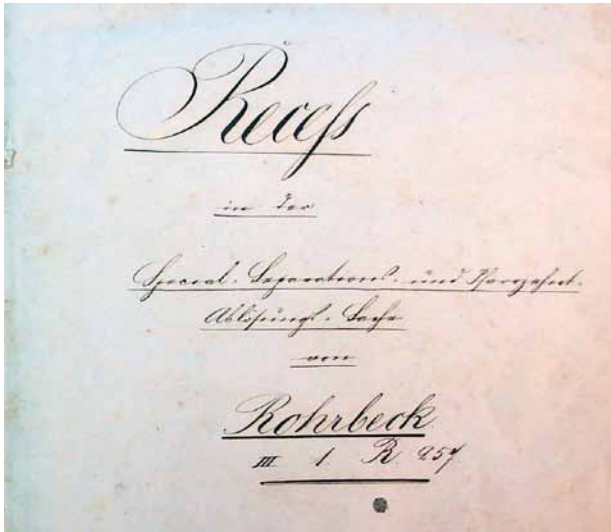 Recess
in der
Special-Separations- und Pfarrzehnt-
Ablösungs-Sache
von
Rohrbeck
III 1. R. 257.